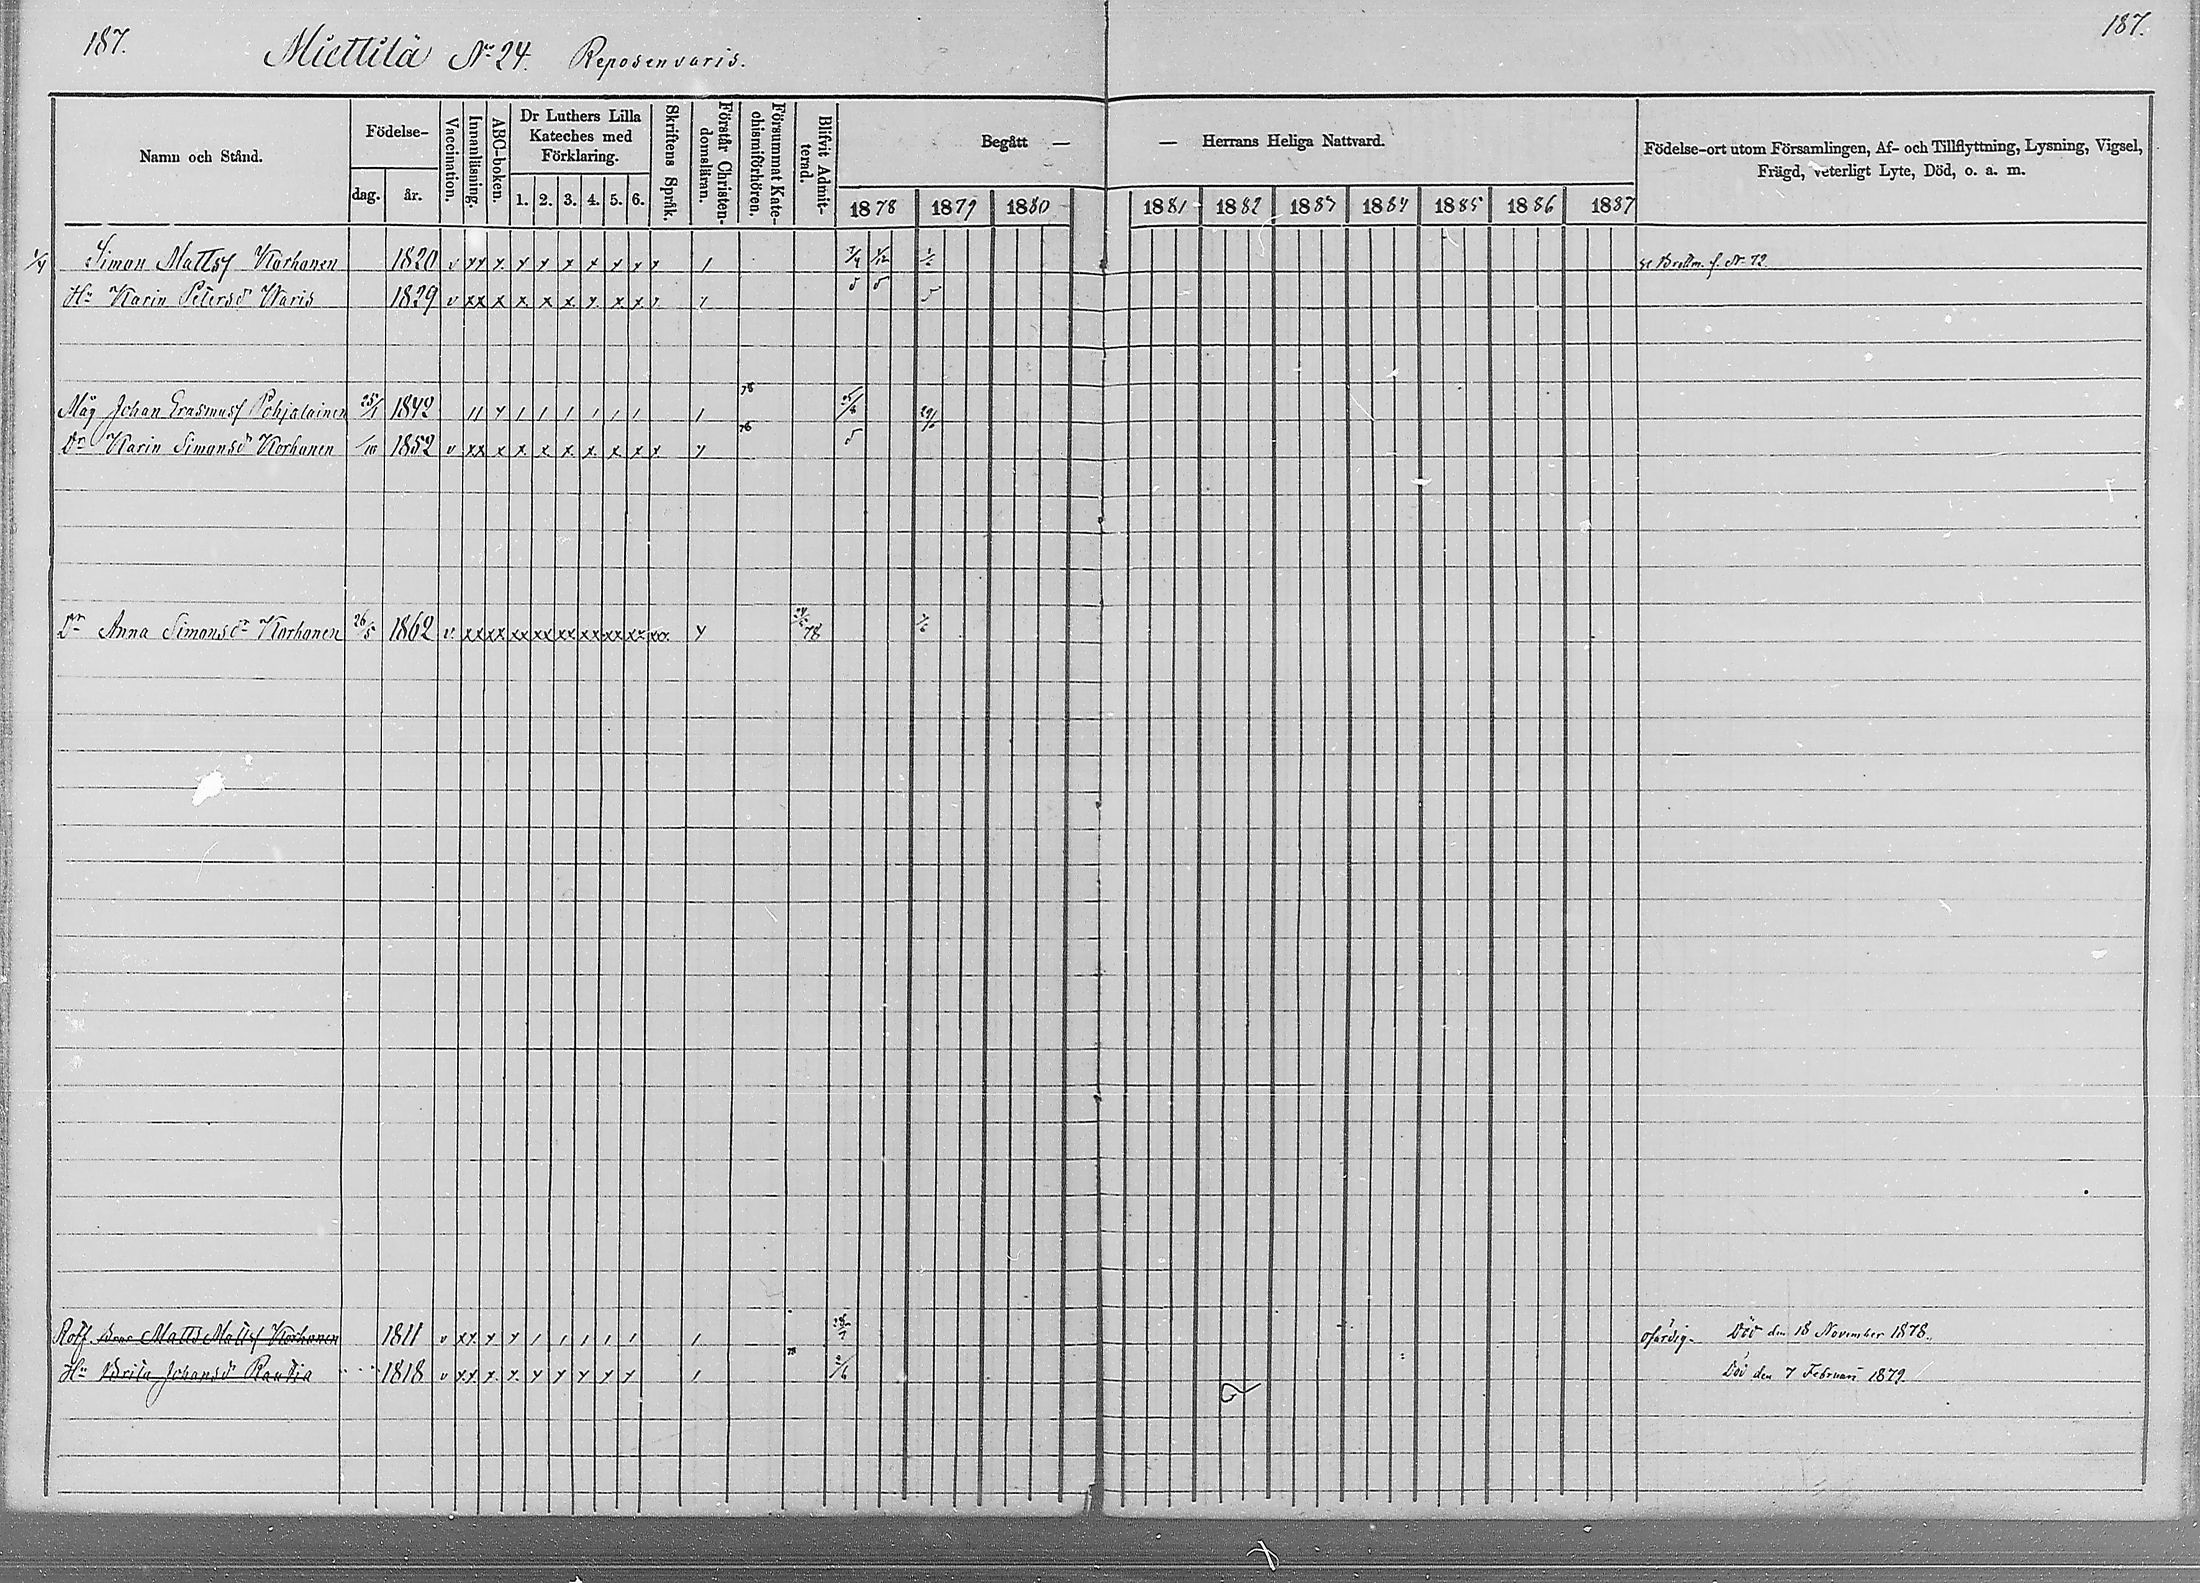 187.
Miettilä No 24. Reposenvaris.
187.
Namn och Stånd.
Födelse-
dag. år.
Vaccination.
Innanläsning.
ABC-boken.
Dr Luthers Lilla Kateches med Förklaring.
1. 2. 3. 4. 5. 6.
Skriftens Språk.
Förstår Christendomsläran.
Försummat Katechismiförhören.
Blifvit Admitterad.
Begått — — Herrans Heliga Nattvard.
1878 1879 1880 1881 1882 1883 1884 1885 1886 1887
Födelse-ort utom Församlingen, Af- och Tillflyttning, Lysning, Vigsel,
Frägd, veterligt Lyte, Död, o. a. m.
1/4 Simon Mattsf Korhonen 1820 v xx x x x x x x x x / se Brottm. f. No 72
Hu Karin Petersdr Waris 1829 v xx x x x x x x x x
Måg Johan Erasmusf Pohjalainen 25/1 1842 // / / / / / / / 78
Dr Karin Simonsdr Korhonen /10 1852 v xx x x x x x x x x 78
Dr Anna Simonsdr Korhonen 26/5 1862 v xx xx xx xx xx xx xx xx xx 78
Roff. Matts Mattsf Korhonen 1811 v xx x x / / / / / / ofärdig. Död den 18 November 1878.
Hu Brita Johansdr Rautia 1818 v xx x x x x x x x / 78 2/6 Död den 7 Februari 1879.